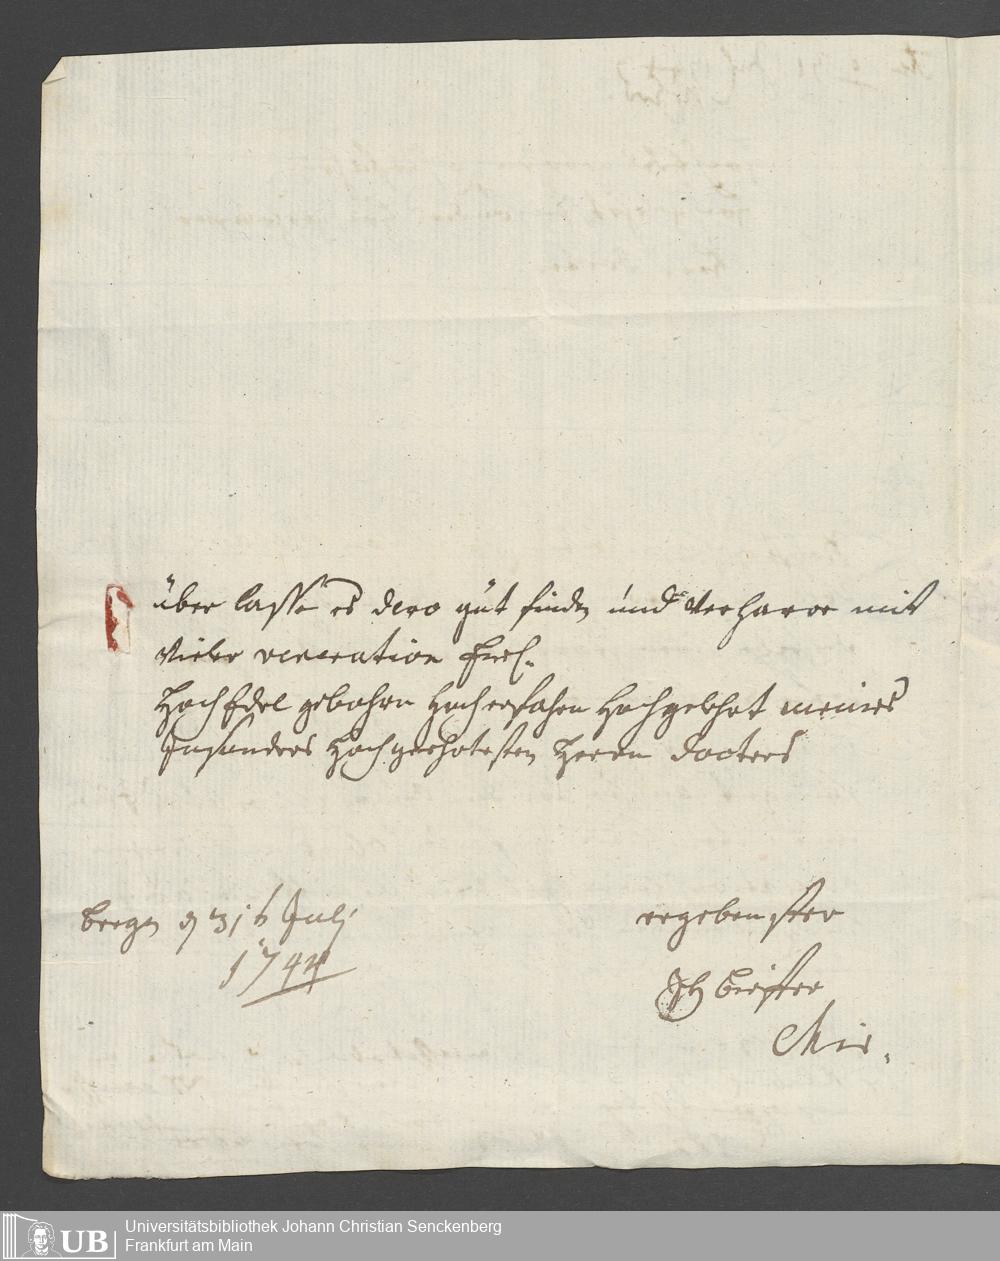 über lasse es dero güt finden ünd verharre mit
vieler veneration
HochEdel gebohrn Hocherfahrn Hochgelehrt meines
Insonders Hochgeehrtesten Herrn Docters
Bergen d 31 t Julj
1744
ergebenster
Universitätsbibliothek Johann Christian Senckenberg
Frankfurt am Main
UB